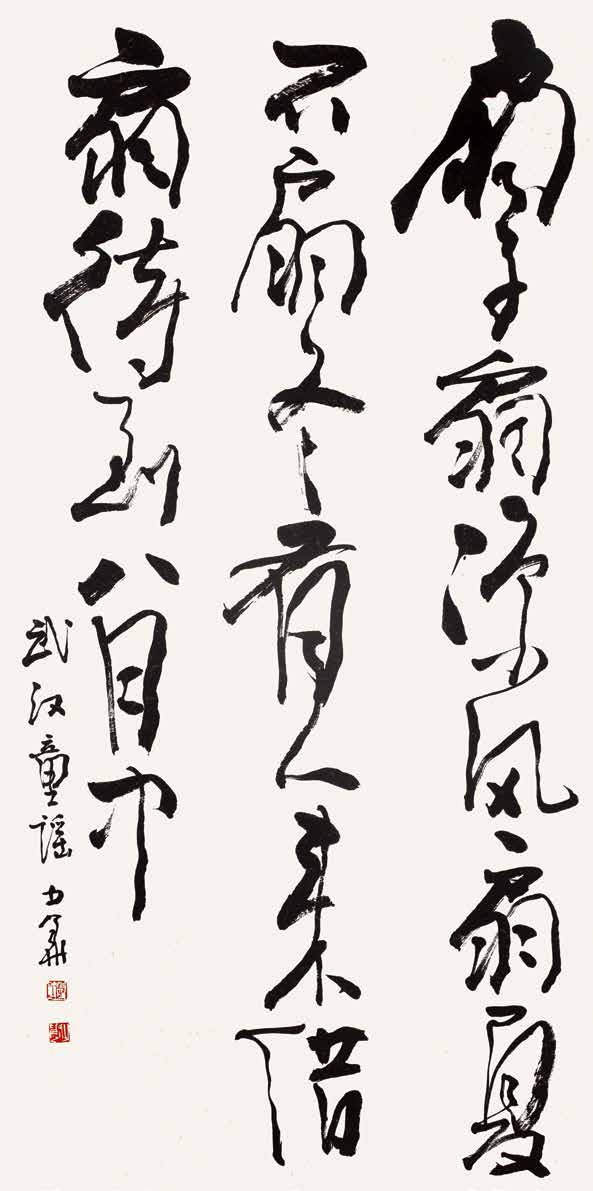 扇子扇凉风扇夏
不扇冬有人来借
扇待到八月中
武汉童谣